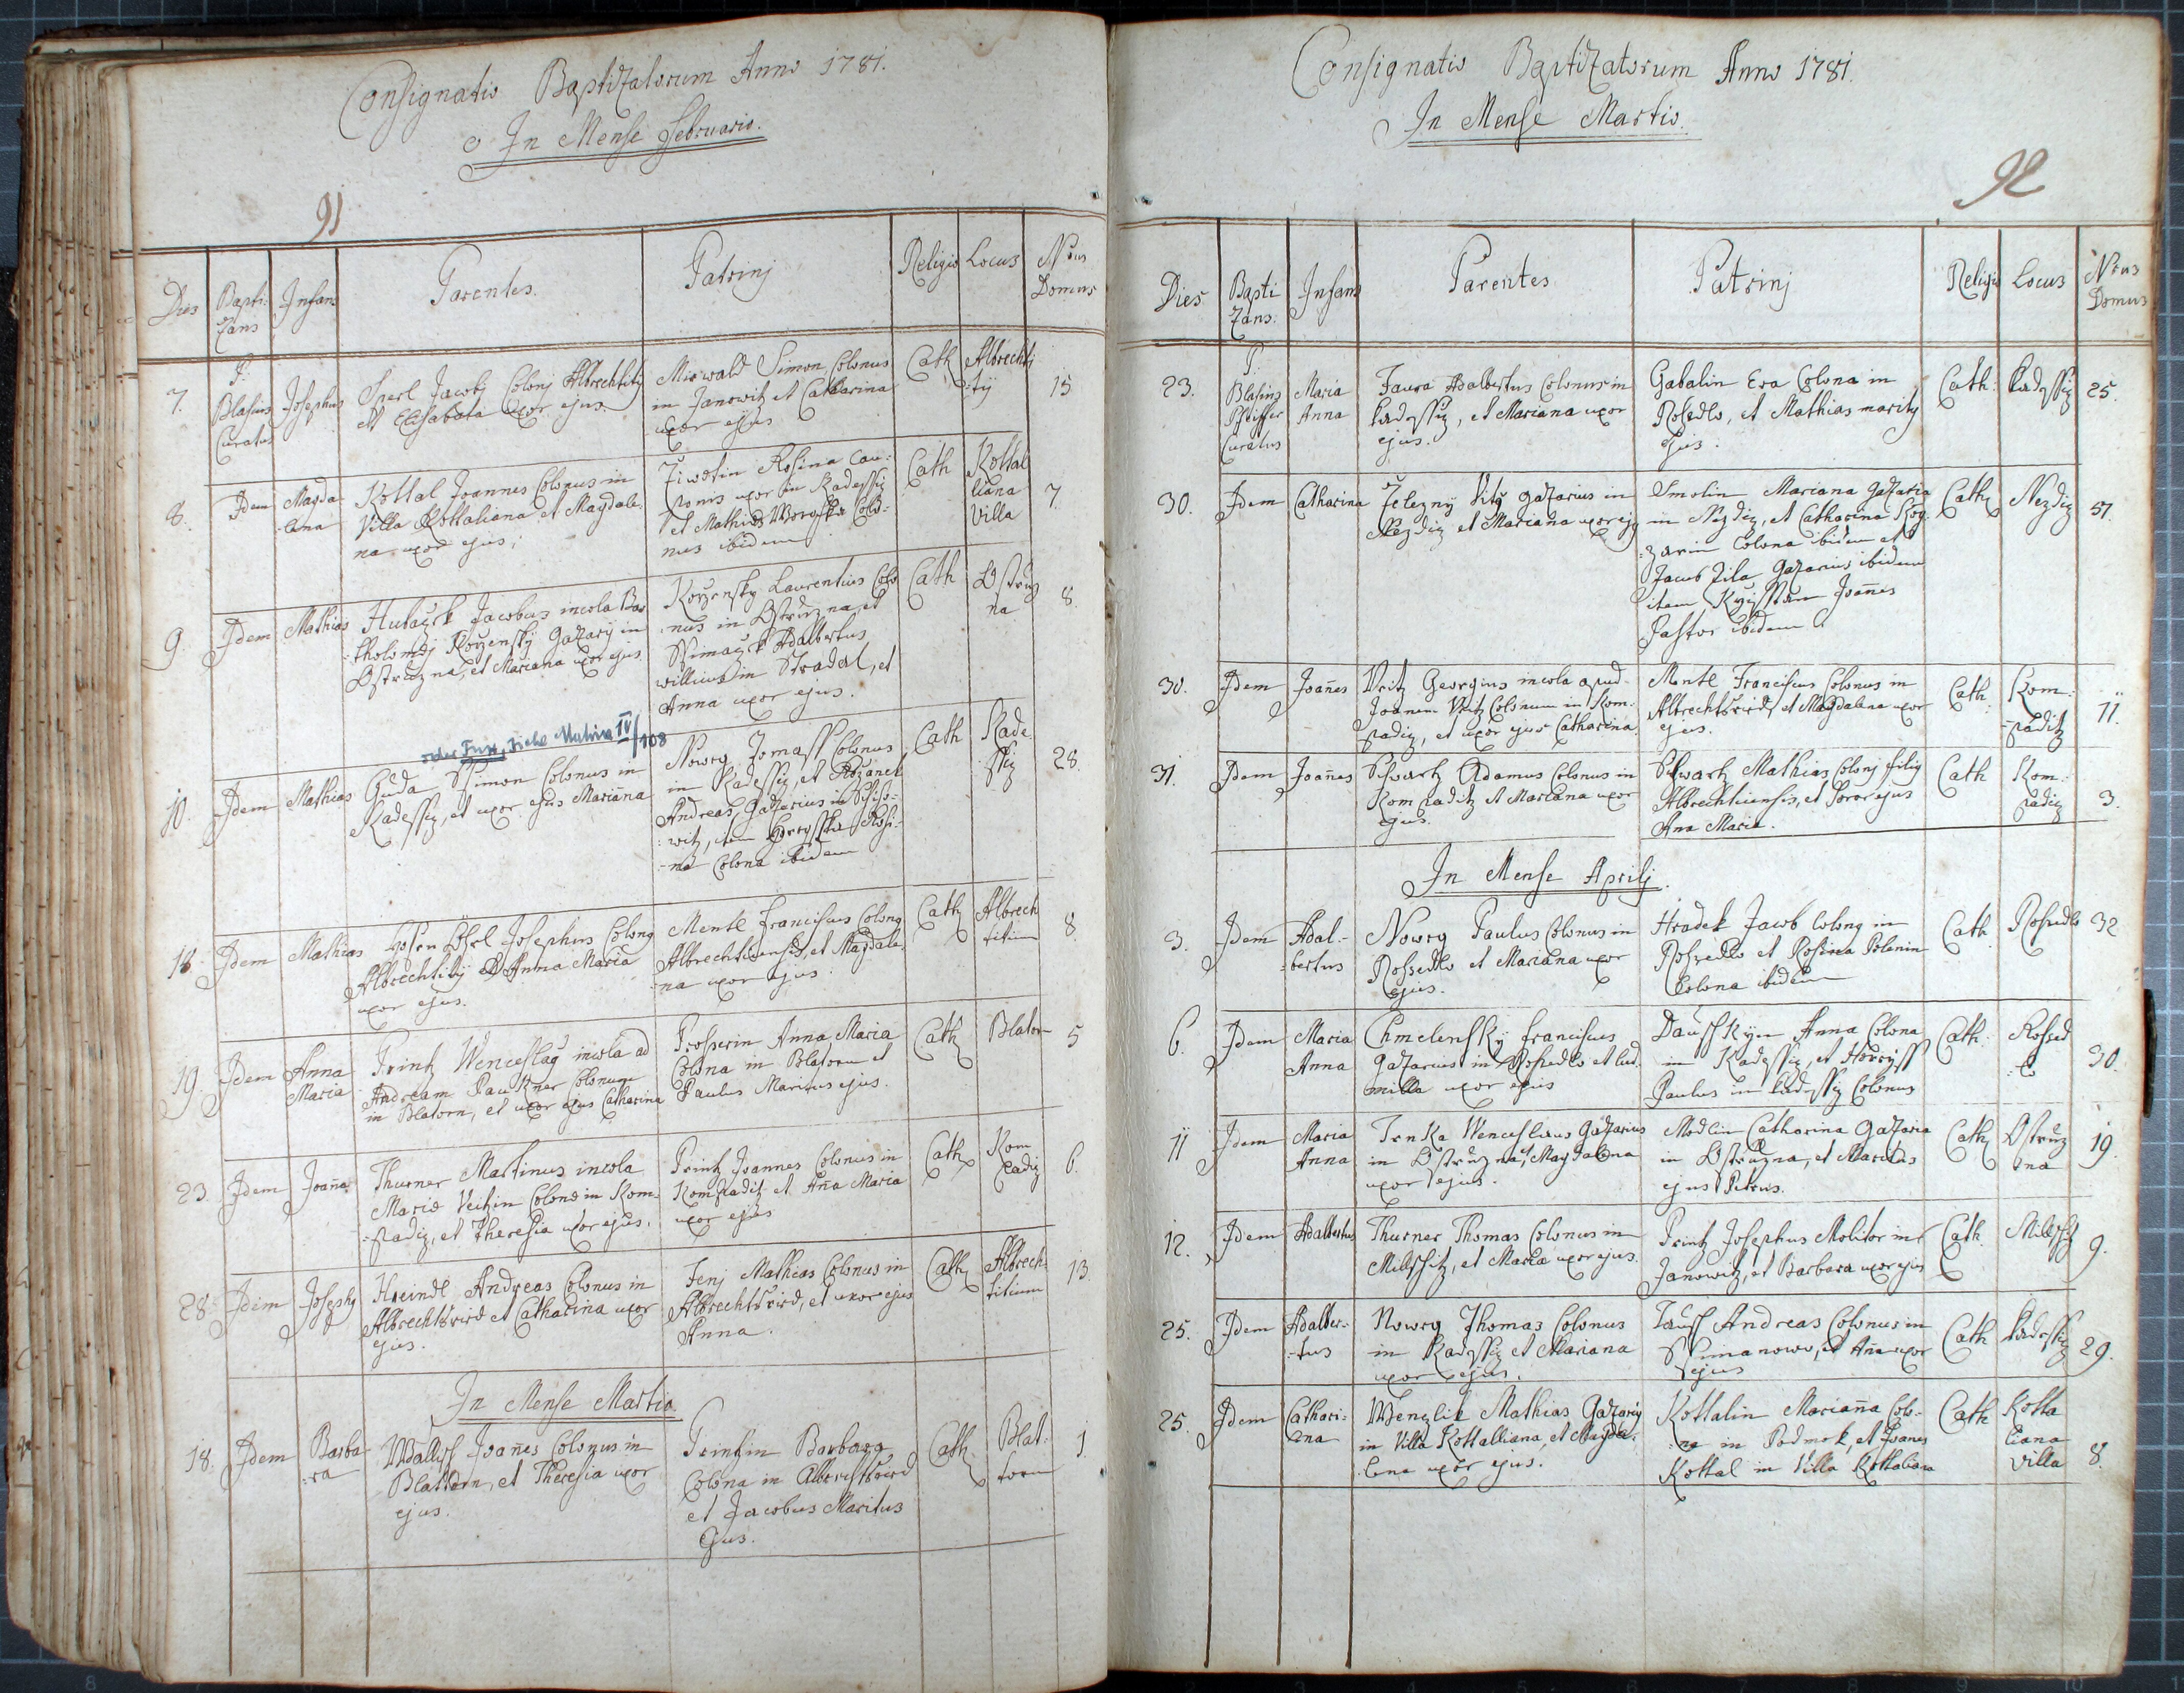 Consignatio Baptizatorum Anno 1781.
In Mense Februario.
91
Dies
Bapti-
zans
Infans
Parentes.
Patrinj
Religio
Locus
Nrus
Domus
7.
P:
Blasius
Curatus
Josephus
Sperl Jacobj Colonj Albrechtitij
et Elisabeta uxor ejus.
Mirwald Simon Colonus
in Janowitz et Catharina
uxor ejus
Cath
Albrechti
:tij
15
8.
Idem
Magda
:lena
Kottal Joannes Colonus in
Villa Kottaliana et Magdale.
na uxor ejus;
Ziwotin Rosina Cau:
ponis uxor in Kadessiz
et Mathias Colo:
nus ibidem
Cath
Kottal
liana
Villa
7.
9.
Idem
Mathias
Jacobus incola Bar
:tholomej Gazarij in
Ostruzna, et Mariana uxor ejus
Laurentius Colo
:nus in Ostruzna, et
Adalbertus
villicus in Stradal, et
Anna uxor ejus.
Cath
Ostruz
na
8.
oder Fux, siehe Matrice IV/108
10.
Idem
Mathias
Guda Simon Colonus in
Kadessiz, et uxor ejus Mariana
Nowry Tomass Colonus
in Kadessiz, et
Andreas Gazarius in
:witz, item Rosi:
:na Colona ibidem
Cath
Kade
ssiz
28.
18.
Idem
Mathias
Josephus Colonus
Albrechtitij et Anna Maria
uxor ejus.
Mentl Franciscus Colonus
Albrechticensis, et Magdale.
:na uxor ejus.
Cath
Albrech
titium
8.
19.
Idem
Anna
Maria
Printz Wenceslaus incola ad
Andream Colonum
in Blatorn, et uxor ejus Catharina
Prosserin Anna Maria
Colona in Blatorn et
Paulus Maritus ejus.
Cath
Blatorn
5
23.
Idem
Joana
Thurner Martinus incola
Mariæ Veitzin Colonæ in Kom.
:padiz, et Theresia uxor ejus.
Printz Joannes Colonus in
Kompaditz et Aña Maria
uxor ejus
Cath
Kom
padiz
6.
28.
Idem
Josephus
Andreas Colonus in
Albrechtsried et Catharina uxor
ejus.
Jenj Mathias Colonus in
Albrechtsried, et uxor ejus
Anna.
Cath
Albrech:
titium
13.
In Mense Martio
18.
Idem
Barba
:ra
Wallisch Joañes Colonus in
Blattorn, et Theresia uxor
ejus.
Printzin Barbara
Colona in Albrechtsried
et Jacobus Maritus
Ejus.
Cath
Blat:
torn
1.
Consignatio Baptizatorum Anno 1781.
In Mense Martio.
92
Dies
Bapti
zans.
Infans
Parentes
Patrinj
Religio
Locus
Nrus
Domus
23.
P:
Blasius
Pfeiffer
Curatus
Maria
Anna
Faura Adalbertus Colonus in
Kadessiz, et Mariana uxor
ejus.
Gabalin Eva Colona in
Rosedlo, et Mathias maritus
Ejus.
Cath:
Kadessiz
25.
30.
Idem
Catharina
Železný Vitus gazarius in
Nezdiz et Mariana uxor ejus
Smolin Mariana gazaria
in Nezdiz, et Catharina
:zarin Colona ibidem et
Jacub Zila Gazarius ibidem
item Joañes
Pastor ibidem
Cath
Nezdiz
57.
30.
Idem
Joañes
Veitz Georgius incola apud
Joanem Veitz Colonum in Kom:
padiz, et uxor ejus Catharina
Mentl Franciscus Colonus in
Albrechtsried et Magdalena uxor
ejus.
Cath
Kom:
:paditz
11.
31.
Idem
Joañes
Schwartz Adamus Colonus in
Kompaditz et Mariana uxor
ejus.
Schwartz Mathias Colonj filius
Albrechticensis, et Soror ejus
Ana Maria.
Cath
Kom:
padiz
3.
In Mense Aprilj.
3.
Idem
Adal:
:bertus
Nowry Paulus Colonus in
Rossedlo et Mariana uxor
ejus.
Hradek Jacob Colonus in
Rossedlo et Rosina Polenin
Colona ibidem
Cath
Rossedlo
32
6.
Idem
Maria
Anna
Chmelensky Franciscus
gazarius in Rossedlo et Lud.
milla uxor ejus
Anna Colona
in Kadessiz, et
Paulus in Kadessiz Colonus
Cath:
Rossed
:lo
30.
11
Idem
Maria
Anna
Trnka Wenceslaus Gazarius
in Ostruzna, et Magdalena
uxor ejus.
Modlin Catharina Gazaria
in Ostruzna, et Maritus
ejus Petrus.
Cath
Ostruz
:na
19.
12.
Idem
Adalbertus
Thurner Thomas Colonus in
Millschitz, et Maria uxor ejus.
Printz Josephus Molitor in
Janowitz, et Barbara uxor ejus
Cath
Millschitz
9.
25.
Idem
Adalber:
:tus
Nowry Thomas Colonus
in Kadessiz et Mariana
uxor ejus.
Tausch Andreas Colonus in
Simanow, et Aña uxor
ejus
Cath
Kadessiz
29.
25.
Idem
Cathari:
:na
Wenzlik Mathias Gazarius
in Villa Kottalliana, et Magda:
lena uxor ejus.
Kottalin Mariana Colo:
:na in Podmok, et Joanes
Kottal in Villa Kottaliana
Cath
Kotta
liana
Villa
8.